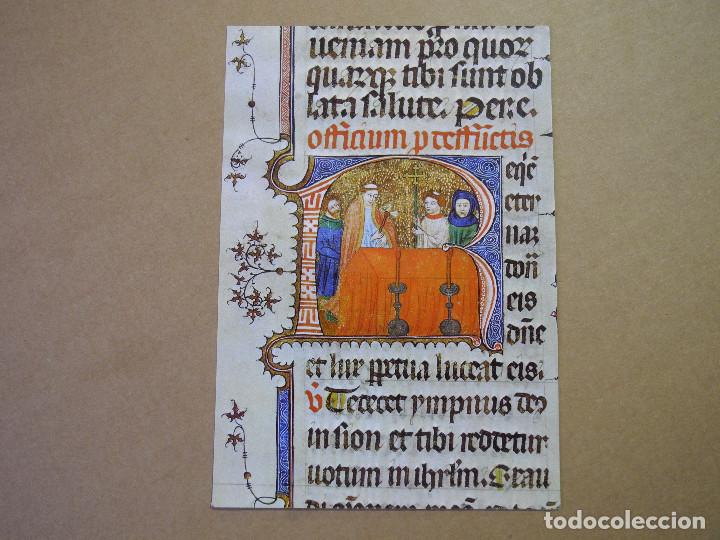 ueniam pro quor
quarꝗ tibi sunt ob
lata salute. Per e.
officium p defūctis
R eqiē
eter
naz
don̄
eis
dn̄e
et lux ꝑpetua luceat eis.
v̄ Te decet ympnus deꝰ
in sion et tibi reddetur
uotum in ihrlm̄. Exau
todocoleccion.net